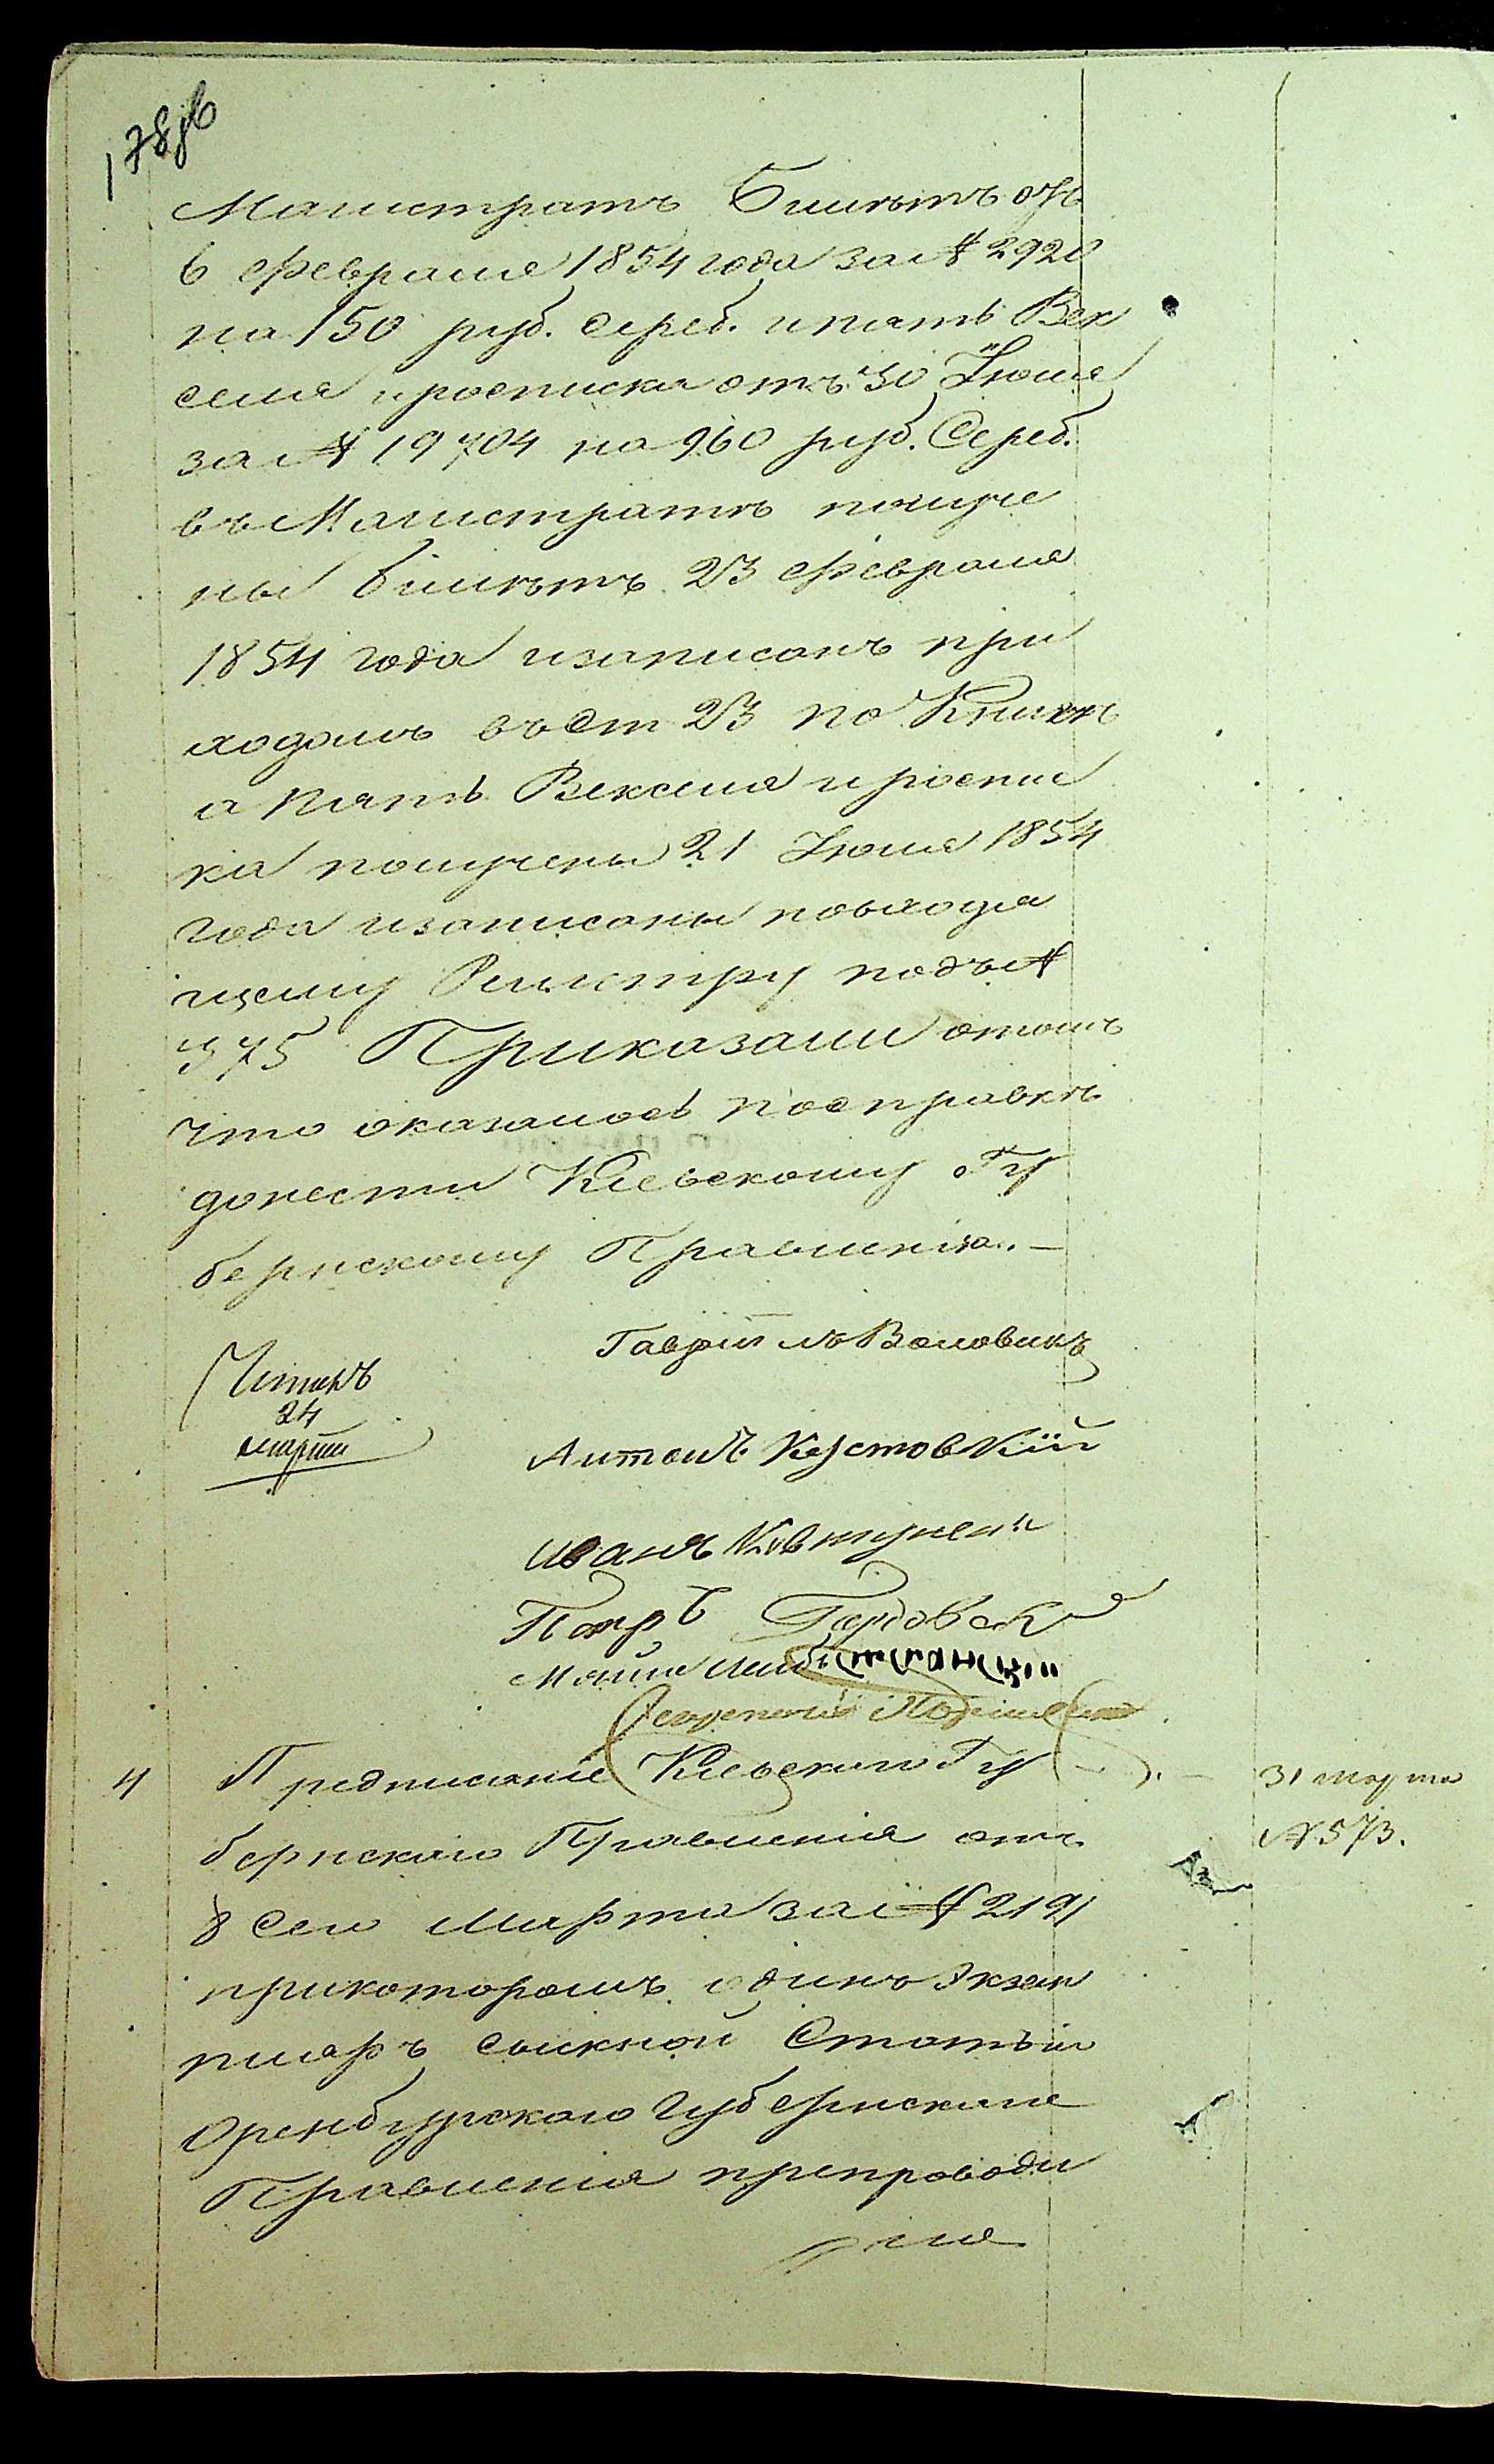 178 об
Магистратъ Билетъ отъ
6 февраля 1854 года за № 2920
на 150 руб. сереб. и пять Век
селя и росписка отъ 30 Iюля
за № 19704 на 960 руб. Сереб.
въ Магистратѣ получе
ны билетъ 23 февраля
1854 года и записанъ при
ходомъ въ ст 23 по Книгѣ
а пять Векселя и роспис
ка получены 21 Iюля 1854
года и записаны по входя
щему Реистру подъ №
375 Приказали о томъ
что оказалось по справкѣ
донести Кіевскому Гу
бернскому Правленію. —
Гаврiилъ Воловикъ
Читалъ
24
марта
Антонъ
Иванъ
Петръ
Секретарь
4 Предписаніе Кіевскаго Гу
бернскаго Правленія отъ
8 сего Марта за № 2191
при которомъ одинъ Экзем
пляръ сыскной Статьи
Оренбургскаго Губернскаго
Правленія препроводи
ля
31 марта
№ 573.